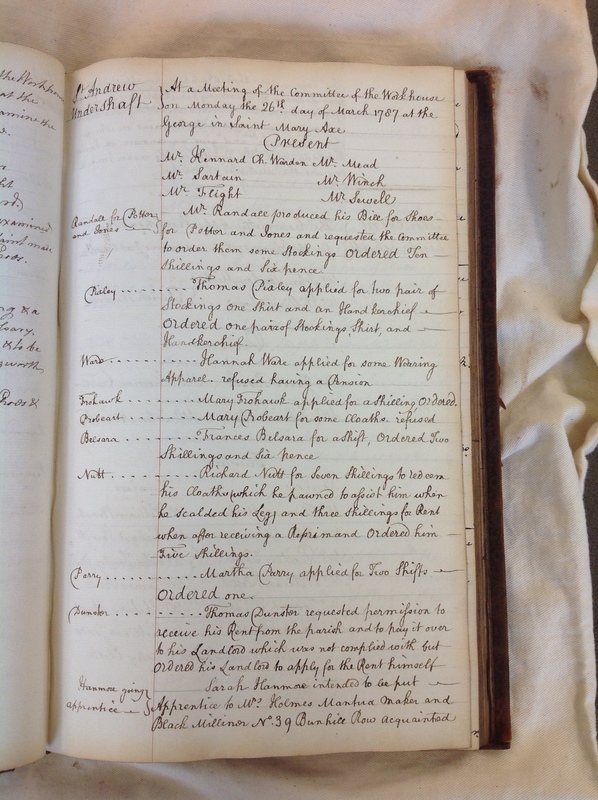 St Andrew
Undershaft
At a Meeting of the Committee of the Workhouse
on Monday the 26th day of March 1787 at the
George in Saint Mary Axe
Present
Mr Kennard Ch Warden Mr Mead
Mr Sartain Mr Winch
Mr Flight Mr Sewell
Randall for Potter
and Jones
Mr Randall produced his Bill for Shoes
for Potter and Jones and requested the Committee
to order them some Stockings Ordered Ten
Shillings and Six pence
Pixley Thomas Pixley applied for two pair of
Stockings one Shirt and an Handkerchief
Ordered one pair of Stockings, Shirt, and
Handkerchief
Ware Hannah Ware applied for some Wearing
Apparel. refused having a Pension
Frohawk Mary Frohawk applied for a shilling Ordered.
Probeart Mary Probeart for some Cloaths. refused
Belsara Frances Belsara for a Shift, Ordered Two
Shillings and Six pence
Nutt Richard Nutt for Seven Shillings to redeem
his Cloaths (which he pawned to assist him when
he scalded his Leg) and three Shillings for Rent
when after receiving a Reprimand Ordered him
Five Shillings.
Parry Martha Parry applied for Two Shifts
Ordered one.
Dunster Thomas Dunster requested permission to
receive his Rent from the parish and to pay it over
to his Landlord which was not complied with but
Ordered his Landlord to apply for the Rent himself
Hanmore going
apprentice
Sarah Hanmore intended to be put
Apprentice to Mrs Holmes Mantua Maker and
Black Milliner No. 39 Bunhill Row acquainted